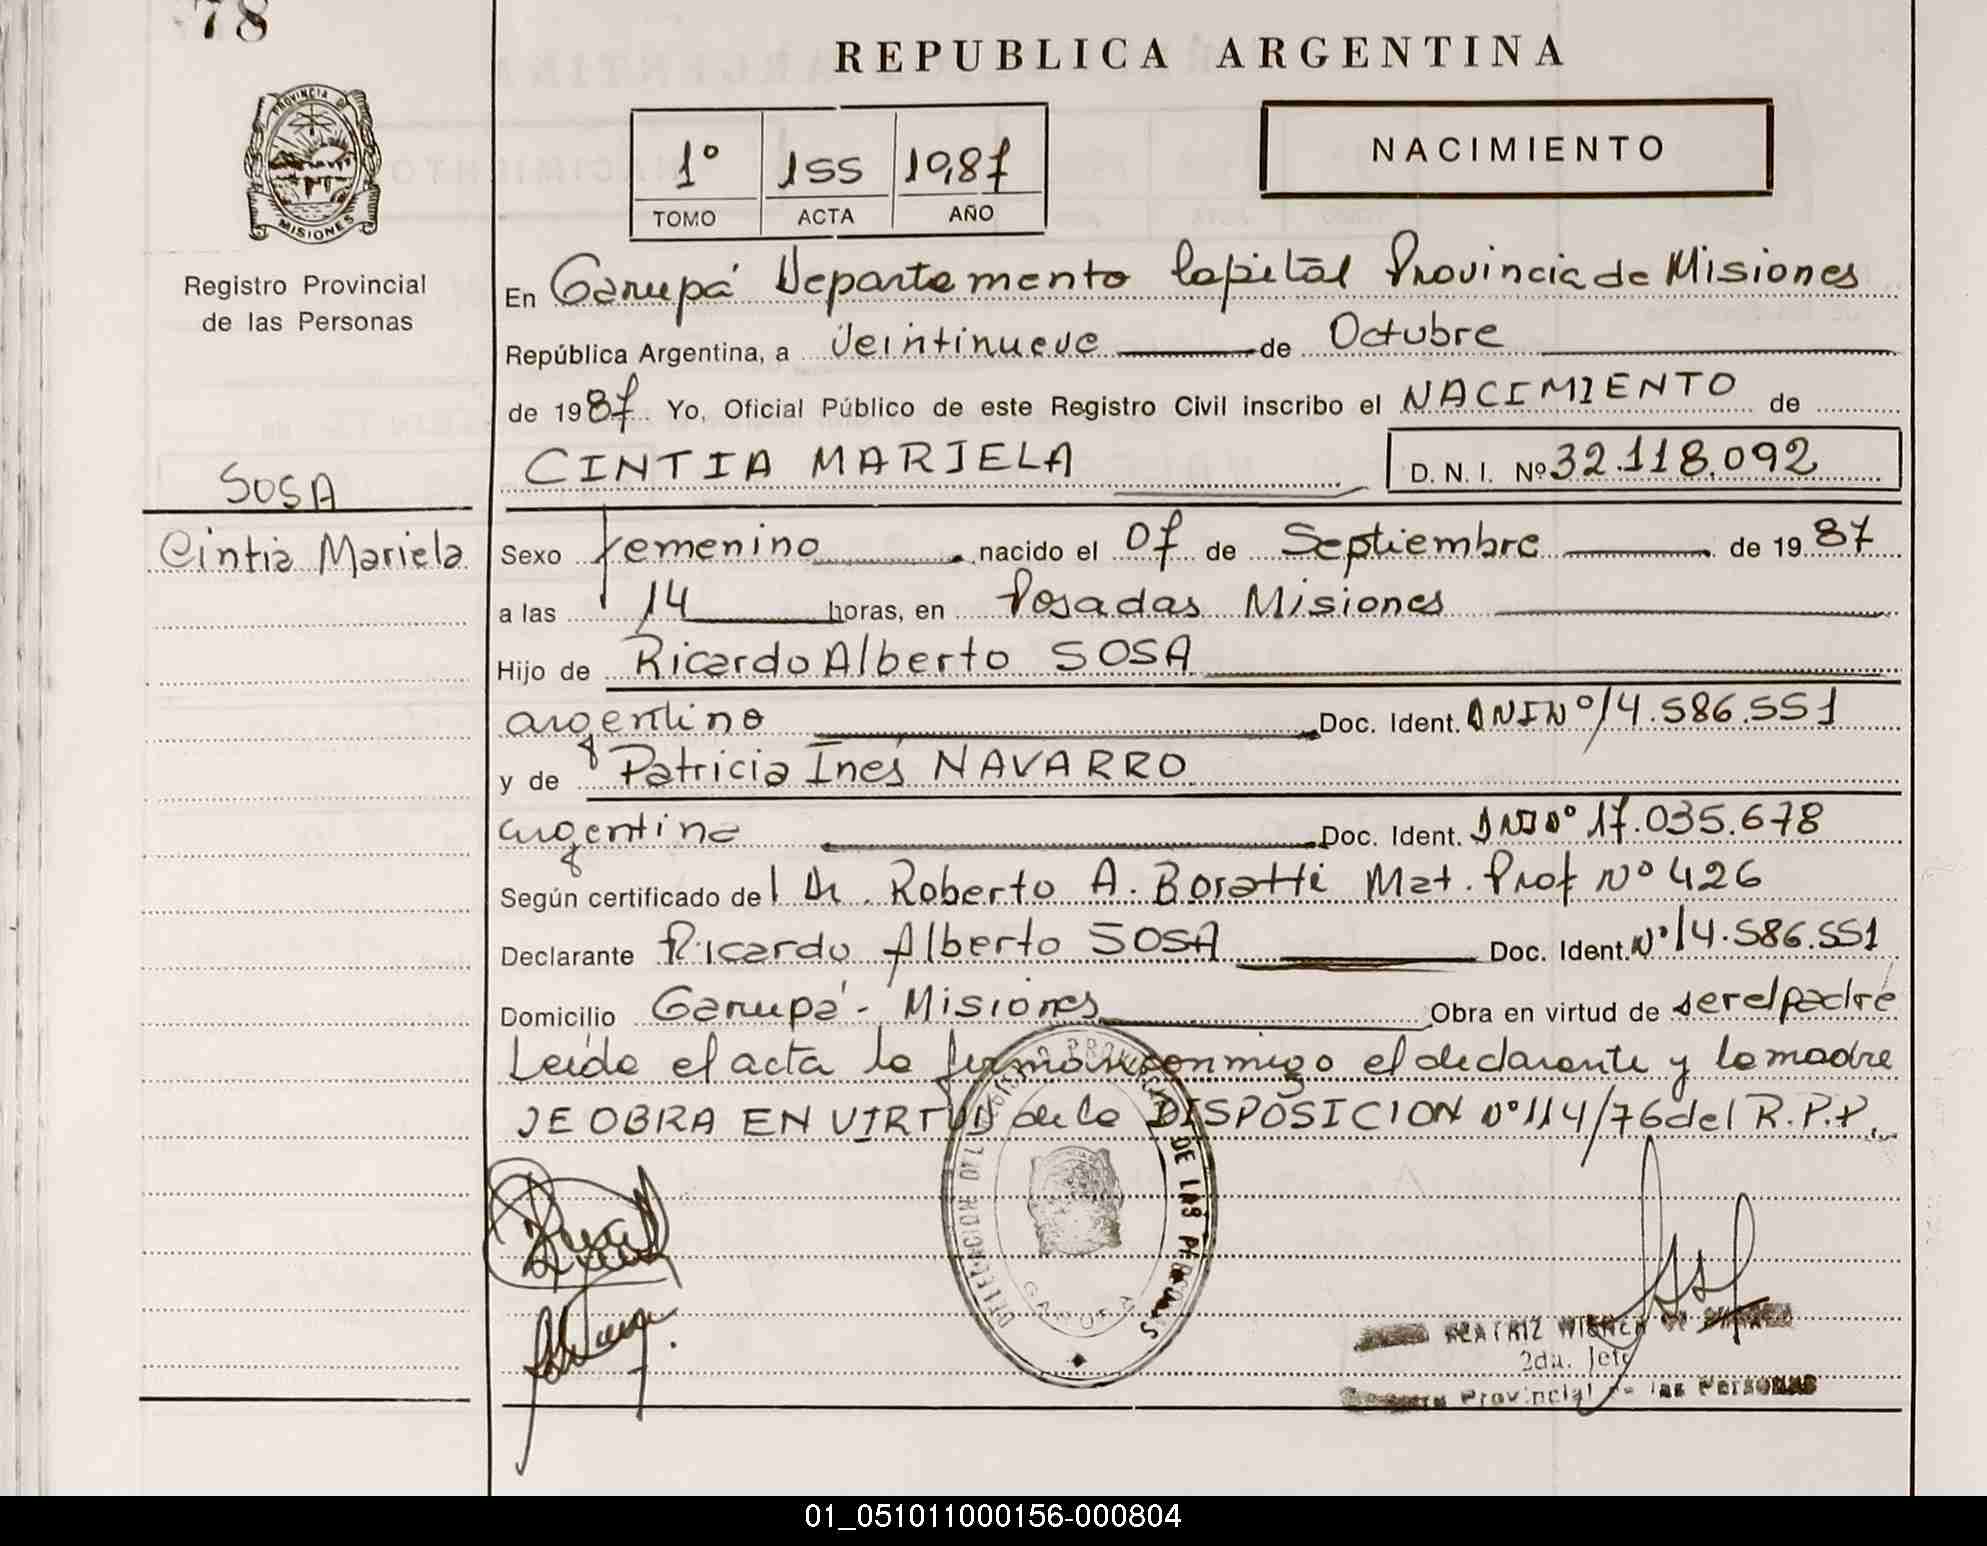 78
REPUBLICA ARGENTINA
PROVINCIA DE
MISIONES
Registro Provincial
de las Personas
1° 155 19,87
TOMO ACTA AÑO
NACIMIENTO
En Garupá Departamento Capital Provincia de Misiones
República Argentina, a veintinueve de Octubre
de 1987 Yo, Oficial Público de este Registro Civil inscribo el NACIMIENTO de
SOSA
CINTIA MARIELA D. N. I. Nº 32.118.092
Cintia Mariela
Sexo femenino nacido el 07 de Septiembre de 1987
a las 14 horas, en Posadas Misiones
Hijo de Ricardo Alberto SOSA
argentino Doc. Ident. DNI N° 14.586.551
y de Patricia Inés NAVARRO
argentina Doc. Ident. DNI N° 17.035.678
Según certificado del Dr. Roberto A. Boratti Mat. Prof N° 426
Declarante Ricardo Alberto SOSA Doc. Ident. N° 14.586.551
Domicilio Garupá - Misiones Obra en virtud de ser el padre
Leída el acta la firman conmigo el declarante y la madre
SE OBRA EN VIRTUD de la DISPOSICION N° 114/76 del R.P.P.
DELEGACION REGISTRO PROVINCIAL DE LAS PERSONAS
GARUPA
BEATRIZ
2da. Jefe
Provincial de las Personas
01_051011000156-000804